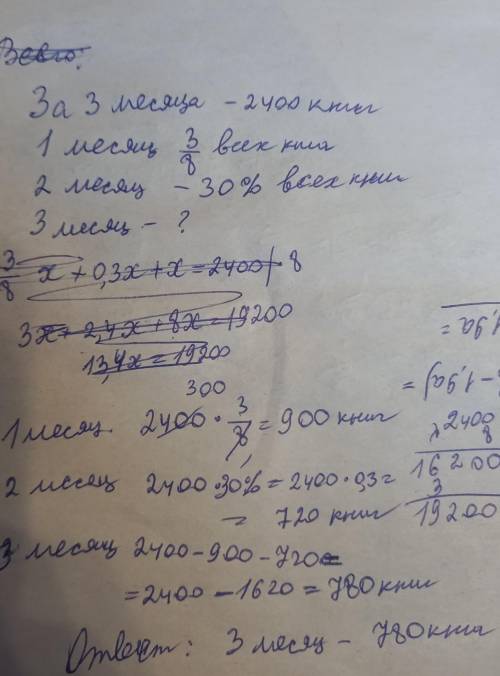 Всего:
За 3 месяца - 2400 книг
1 месяц 3/8 всех книг
2 месяц - 30% всех книг
3 месяц - ?
3/8 x + 0,3x + x = 2400 | 8
3x + 2,4x + 8x = 19200
13,4x = 19200
300
1 месяц. 2400 · 3/8 = 900 книг
2 месяц 2400 · 30% = 2400 · 0,3 =
= 720 книг
3 месяц 2400 - 900 - 720 =
= 2400 - 1620 = 780 книг
Ответ: 3 месяц - 780 книг
1,9a =
- 1,9a) =
x 2400
8
16200
3
19200